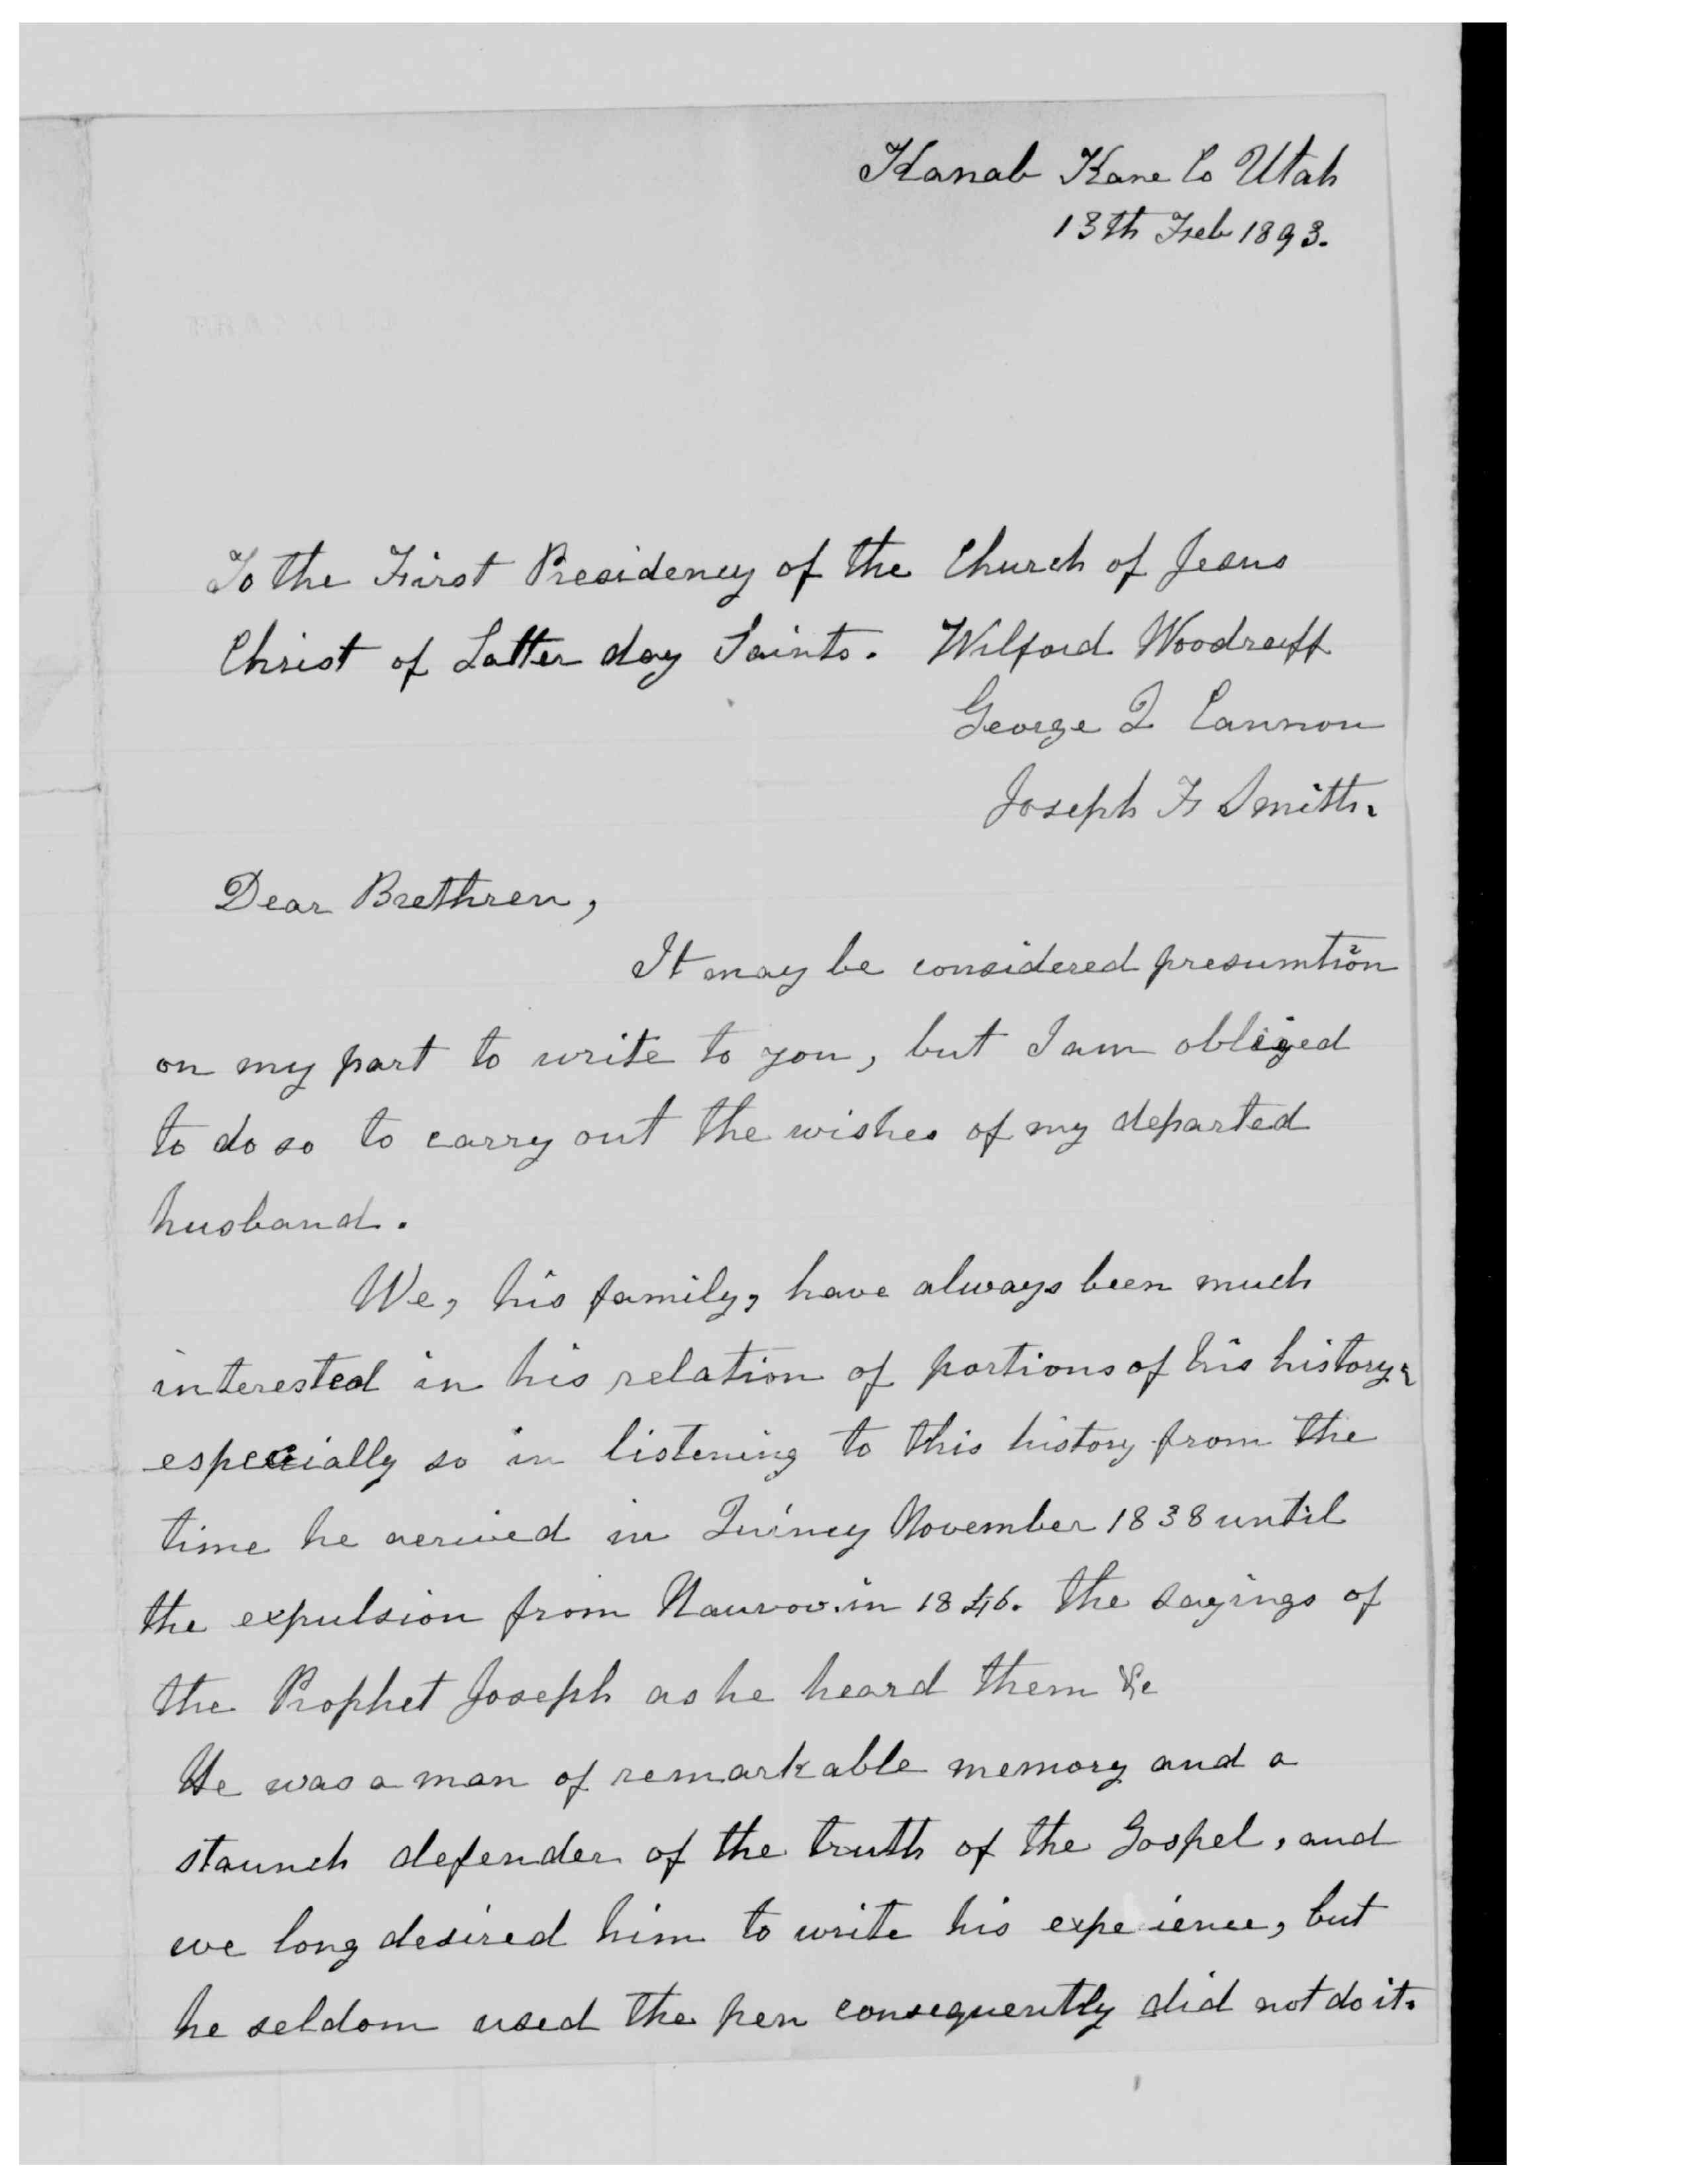 Kanab Kane Co Utah
13th Feb 1893.
To the First Presidency of the Church of Jesus
Christ of Latter day Saints. Wilford Woodruff
George Q Cannon
Joseph F Smith.
Dear Brethren,
It may be considered presumtion
on my part to write to you, but I am obliged
to do so to carry out the wishes of my departed
husband.
We, his family, have always been much
interested in his relation of portions of his history,
especially so in listening to this history from the
time he arrived in Quincy November 1838 until
the expulsion from Nauvoo in 1846. the sayings of
the Prophet Joseph as he heard them &c
He was a man of remarkable memory and a
staunch defender of the truth of the Gospel, and
we long desired him to write his expe ience, but
he seldom used the pen consequently did not do it.